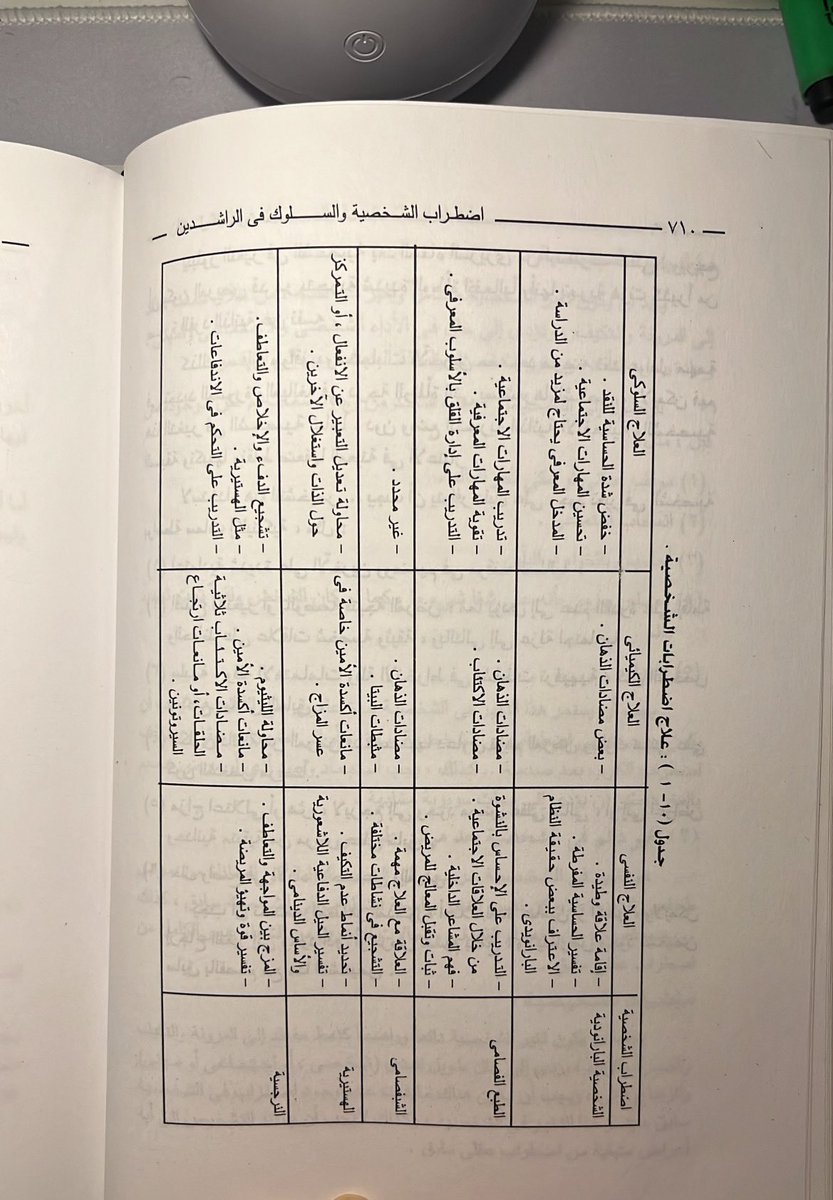 ٧١٠
اضطراب الشخصية والسلوك فى الراشدين
جدول (١٠-١) : علاج اضطرابات الشخصية .
اضطراب الشخصية
العلاج النفسى
العلاج الكيميائى
العلاج السلوكى
الشخصية البارانودية
– إقامة علاقة وطيدة .
– تفسير الحساسية المفرطة .
– الاعتراف ببعض حقيقة النظام
البارانويدى .
– بعض مضادات الذهان .
– خفض شدة الحساسية للنقد .
– تحسين المهارات الاجتماعية .
– المدخل المعرفى يحتاج لمزيد من الدراسة .
الطبع الفصامى
– التدريب على الإحساس بالنشوة
من خلال العلاقات الاجتماعية .
– فهم المشاعر الداخلية .
– ثبات وتقبل المعالج للمريض .
– مضادات الذهان .
– مضادات الاكتئاب .
– تدريب المهارات الاجتماعية .
– تقوية المهارات المعرفية .
– التدريب على إدارة القلق بالأسلوب المعرفى .
الشبفصامى
– العلاقة مع العلاج مهمة .
– التشجيع فى نشاطات مختلفة .
– مضادات الذهان .
– مثبطات البيتا .
– غير محدد .
الهستيرية
– تحديد أنماط عدم التكيف .
– تفسير الحيل الدفاعية اللاشعورية
والأساس الدينامى .
– مانعات أكسدة الأمين خاصة فى
عسر المزاج .
– محاولة تعديل التعبير عن الانفعال ، أو التمركز
حول الذات واستغلال الآخرين .
النرجسية
– المزج بين المواجهة والتعاطف .
– تفسير قوة وتهيؤ المريضة .
– محاولة الليثيوم .
– مانعات أكسدة الأمين .
– مضادات الاكتئاب ثلاثية
الحلقات، أو مانعات ارتجاع
السيروتونين .
– تشجيع الدفء والإخلاص والتعاطف .
– مثل الهستيرية .
– التدريب على التحكم فى الاندفاعات .